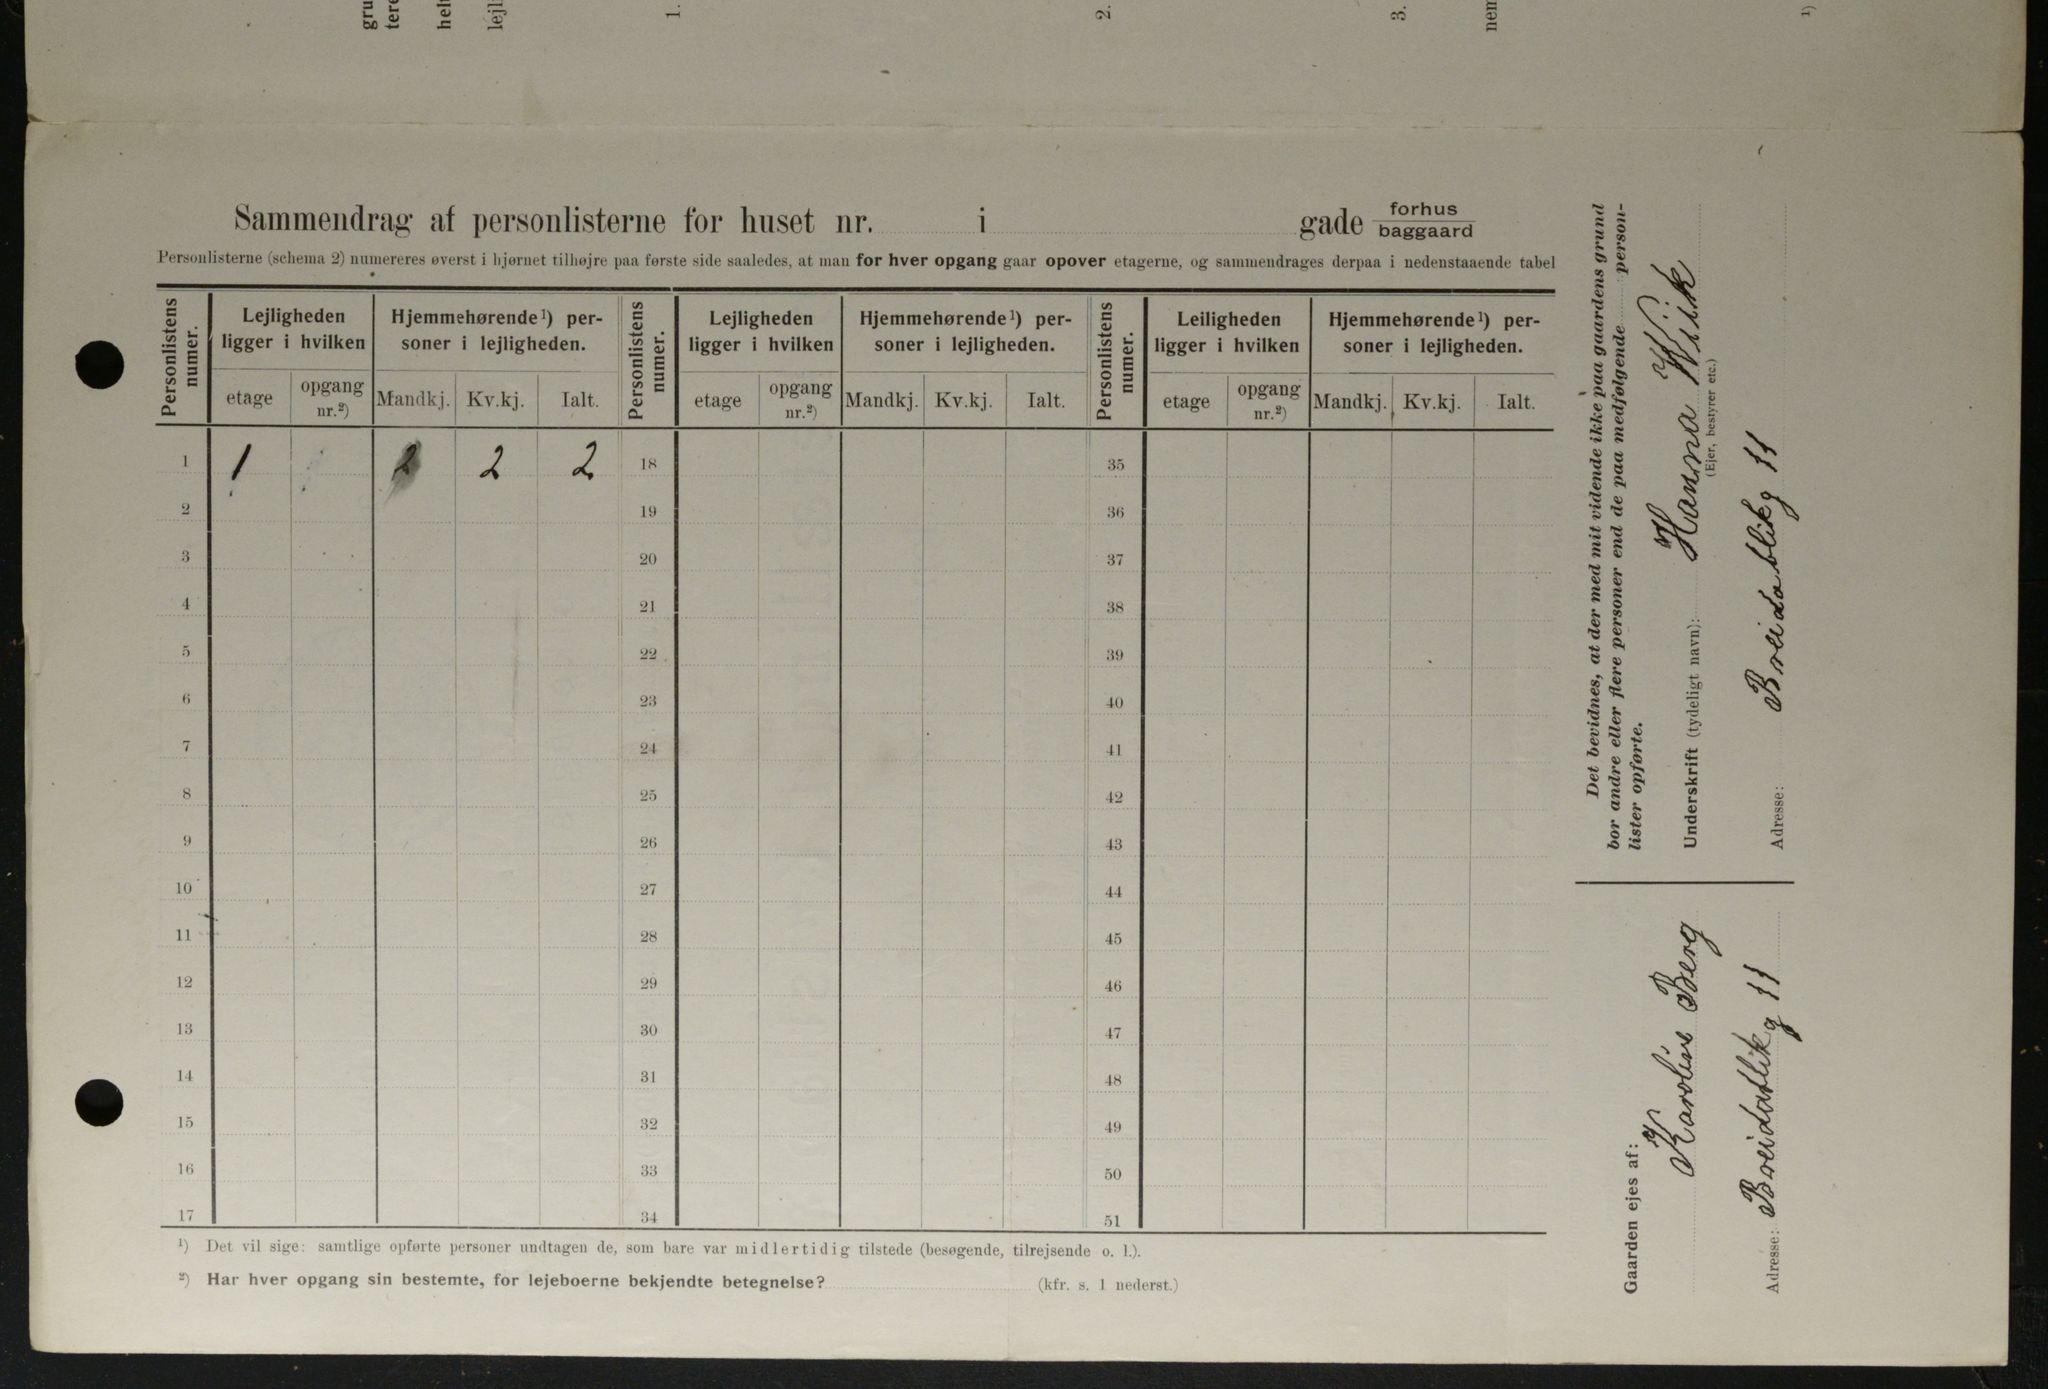 gru
tere
hel
lejl
1.
2.
3.
nem
1)
Sammendrag af personlisterne for huset nr. i gade forhus
baggaard
Personlisterne (schema 2) numereres øverst i hjørnet tilhøjre paa første side saaledes, at man for hver opgang gaar opover etagerne, og sammendrages derpaa i nedenstaaende tabel
Personlistens numer. Lejligheden ligger i hvilken Hjemmehørende¹) personer i lejligheden. Personlistens numer. Lejligheden ligger i hvilken Hjemmehørende¹) personer i lejligheden. Personlistens numer. Leiligheden ligger i hvilken Hjemmehørende¹) personer i lejligheden.
etage opgang nr.²) Mandkj. Kv.kj. Ialt. etage opgang nr.²) Mandkj. Kv.kj. Ialt. etage opgang nr.²) Mandkj. Kv.kj. Ialt.
1 1 2 2 2 18 35
2 19 36
3 20 37
4 21 38
5 22 39
6 23 40
7 24 41
8 25 42
9 26 43
10 27 44
11 28 45
12 29 46
13 30 47
14 31 48
15 32 49
16 33 50
17 34 51
¹) Det vil sige: samtlige opførte personer undtagen de, som bare var midlertidig tilstede (besøgende, tilrejsende o. l.).
²) Har hver opgang sin bestemte, for lejeboerne bekjendte betegnelse? (kfr. s. 1 nederst.)
Det bevidnes, at der med mit vidende ikke paa gaardens grund
bor andre eller flere personer end de paa medfølgende person-
lister opførte.
Underskrift (tydeligt navn): Hanna Wiik
(Ejer, bestyrer etc.)
Adresse: Breidablikg 11
Gaarden ejes af:
Karoline Berg
Adresse: Breidablikg 11